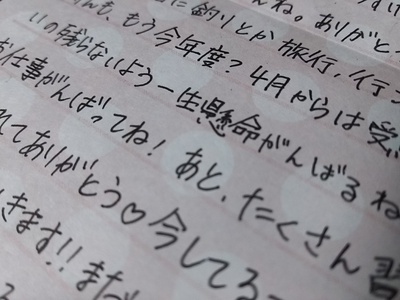 ね。ありがとう
釣りとか旅行、行
も、もう今年度?4月からは受
いの残らないよう一生懸命がんばるね
お仕事がんばってね!あと、たくさん習
れてありがとう♡今してる
きます!!また